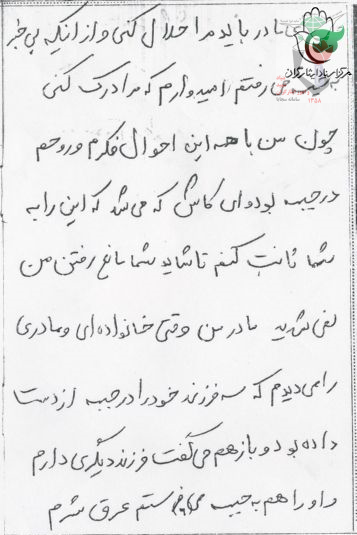 مادر باید مرا حلال کنی و از اینکه بی خبر
رفتم امیدوارم که مرا درک کنی
چون من با همه این احوال فکرم و روحم
در جبهه بود و ای کاش که می شد که این را به
شما ثابت کنم تا شاید شما مانع رفتن من
نمی شدید مادر من وقتی خانواده ای و مادری
را می دیدم که سه فرزند خود را در جبهه از دست
داده بود و باز هم می گفت فرزند دیگری دارم
و او را هم به جبهه می فرستم عرق شرم
مرکز اسناد ایثارگران